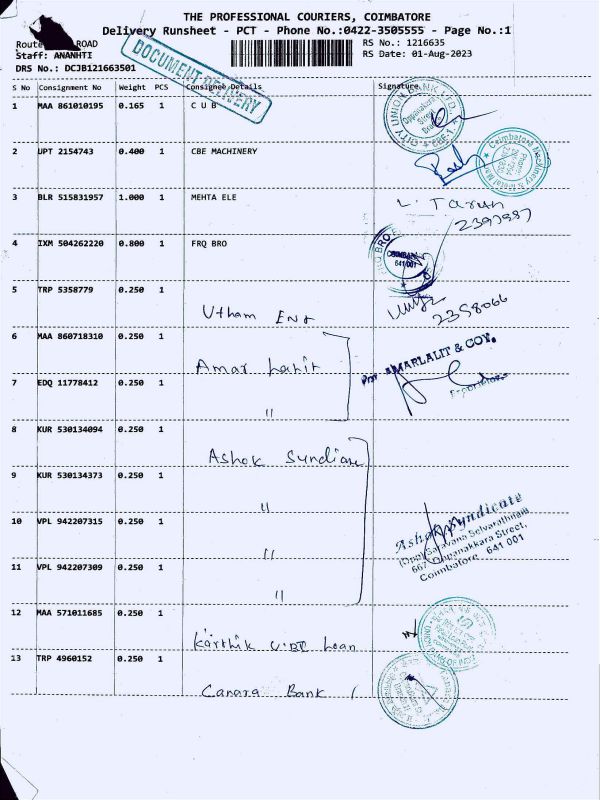 THE PROFESSIONAL COURIERS, COIMBATORE
Delivery Runsheet - PCT - Phone No.:0422-3505555 - Page No.:1
Route ROAD RS No.: 1216635
Staff: ANANHTI RS Date: 01-Aug-2023
DRS No.: DCJB121663501
DOCUMENT DELIVERY
S No Consignment No Weight PCS Consignee Details Signature
1 MAA 861010195 0.165 1 C U B
CITY UNION BANK LTD. Oppanakara Street CBE-1
2 JPT 2154743 0.400 1 CBE MACHINERY
3 BLR 515831957 1.000 1 MEHTA ELE
L. Tarun
2397987
4 IXM 504262220 0.800 1 FRQ BRO
641 001
5 TRP 5358779 0.250 1
Utham Ent 2398066
6 MAA 860718310 0.250 1
Amar Lalit
AMARLALIT & COY.
7 EDQ 11778412 0.250 1
"
8 KUR 530134094 0.250 1
Ashok Syndicate
9 KUR 530134373 0.250 1
"
10 VPL 942207315 0.250 1
"
Ashok Syndicate
(Opp) Saravana Selvarathinam
667 Oppanakkara Street,
Coimbatore 641 001
11 VPL 942207309 0.250 1
"
12 MAA 571011685 0.250 1
Karthik UBI Loan
13 TRP 4960152 0.250 1
Canara Bank